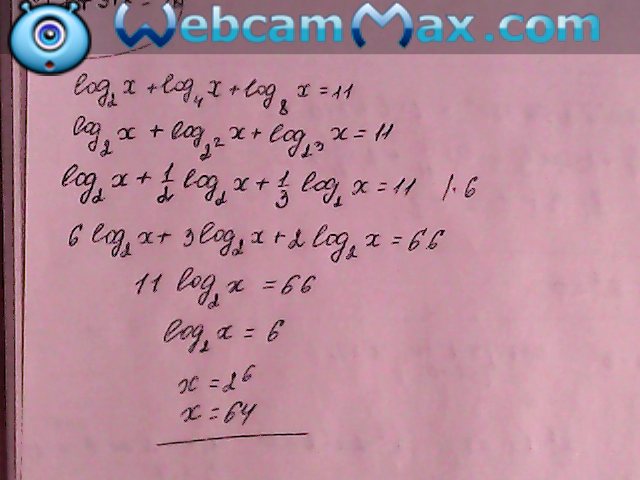 WebcamMax.com
log₂x + log₄x + log₈x = 11
log₂x + log₂²x + log₂³x = 11
log₂x + 1/2 log₂x + 1/3 log₂x = 11 /· 6
6 log₂x + 3 log₂x + 2 log₂x = 66
11 log₂x = 66
log₂x = 6
x = 2⁶
x = 64